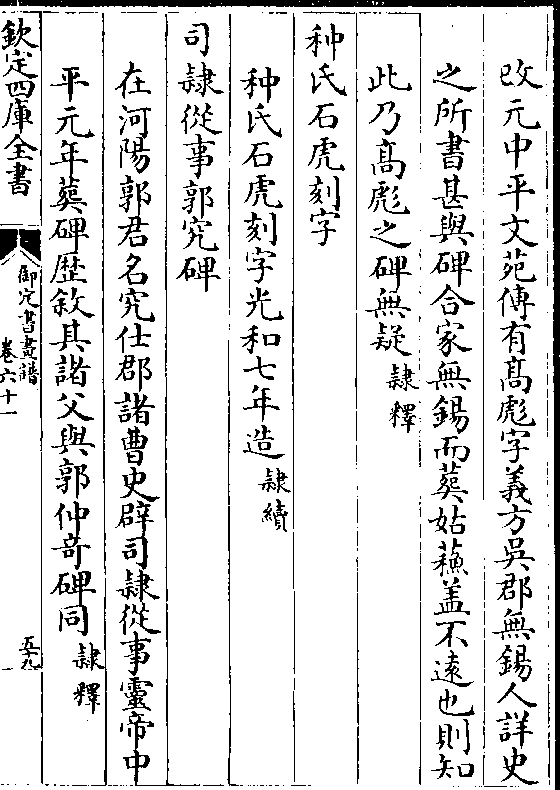 改元中平文苑傳有髙彪字義方吳郡無錫人詳史
之所書甚與碑合家無錫而葬姑蘓盖不逺也則知
此乃髙彪之碑無疑隷釋
种氏石虎刻字
种氏石虎刻字光和七年造隷續
司隷從事郭究碑
在河陽郭君名究仕郡諸曹史辟司隷從事靈帝中
平元年葬碑歴敘其諸父與郭仲奇碑同隷釋
欽定四庫全書
御定書畫譜
卷六十一
五九